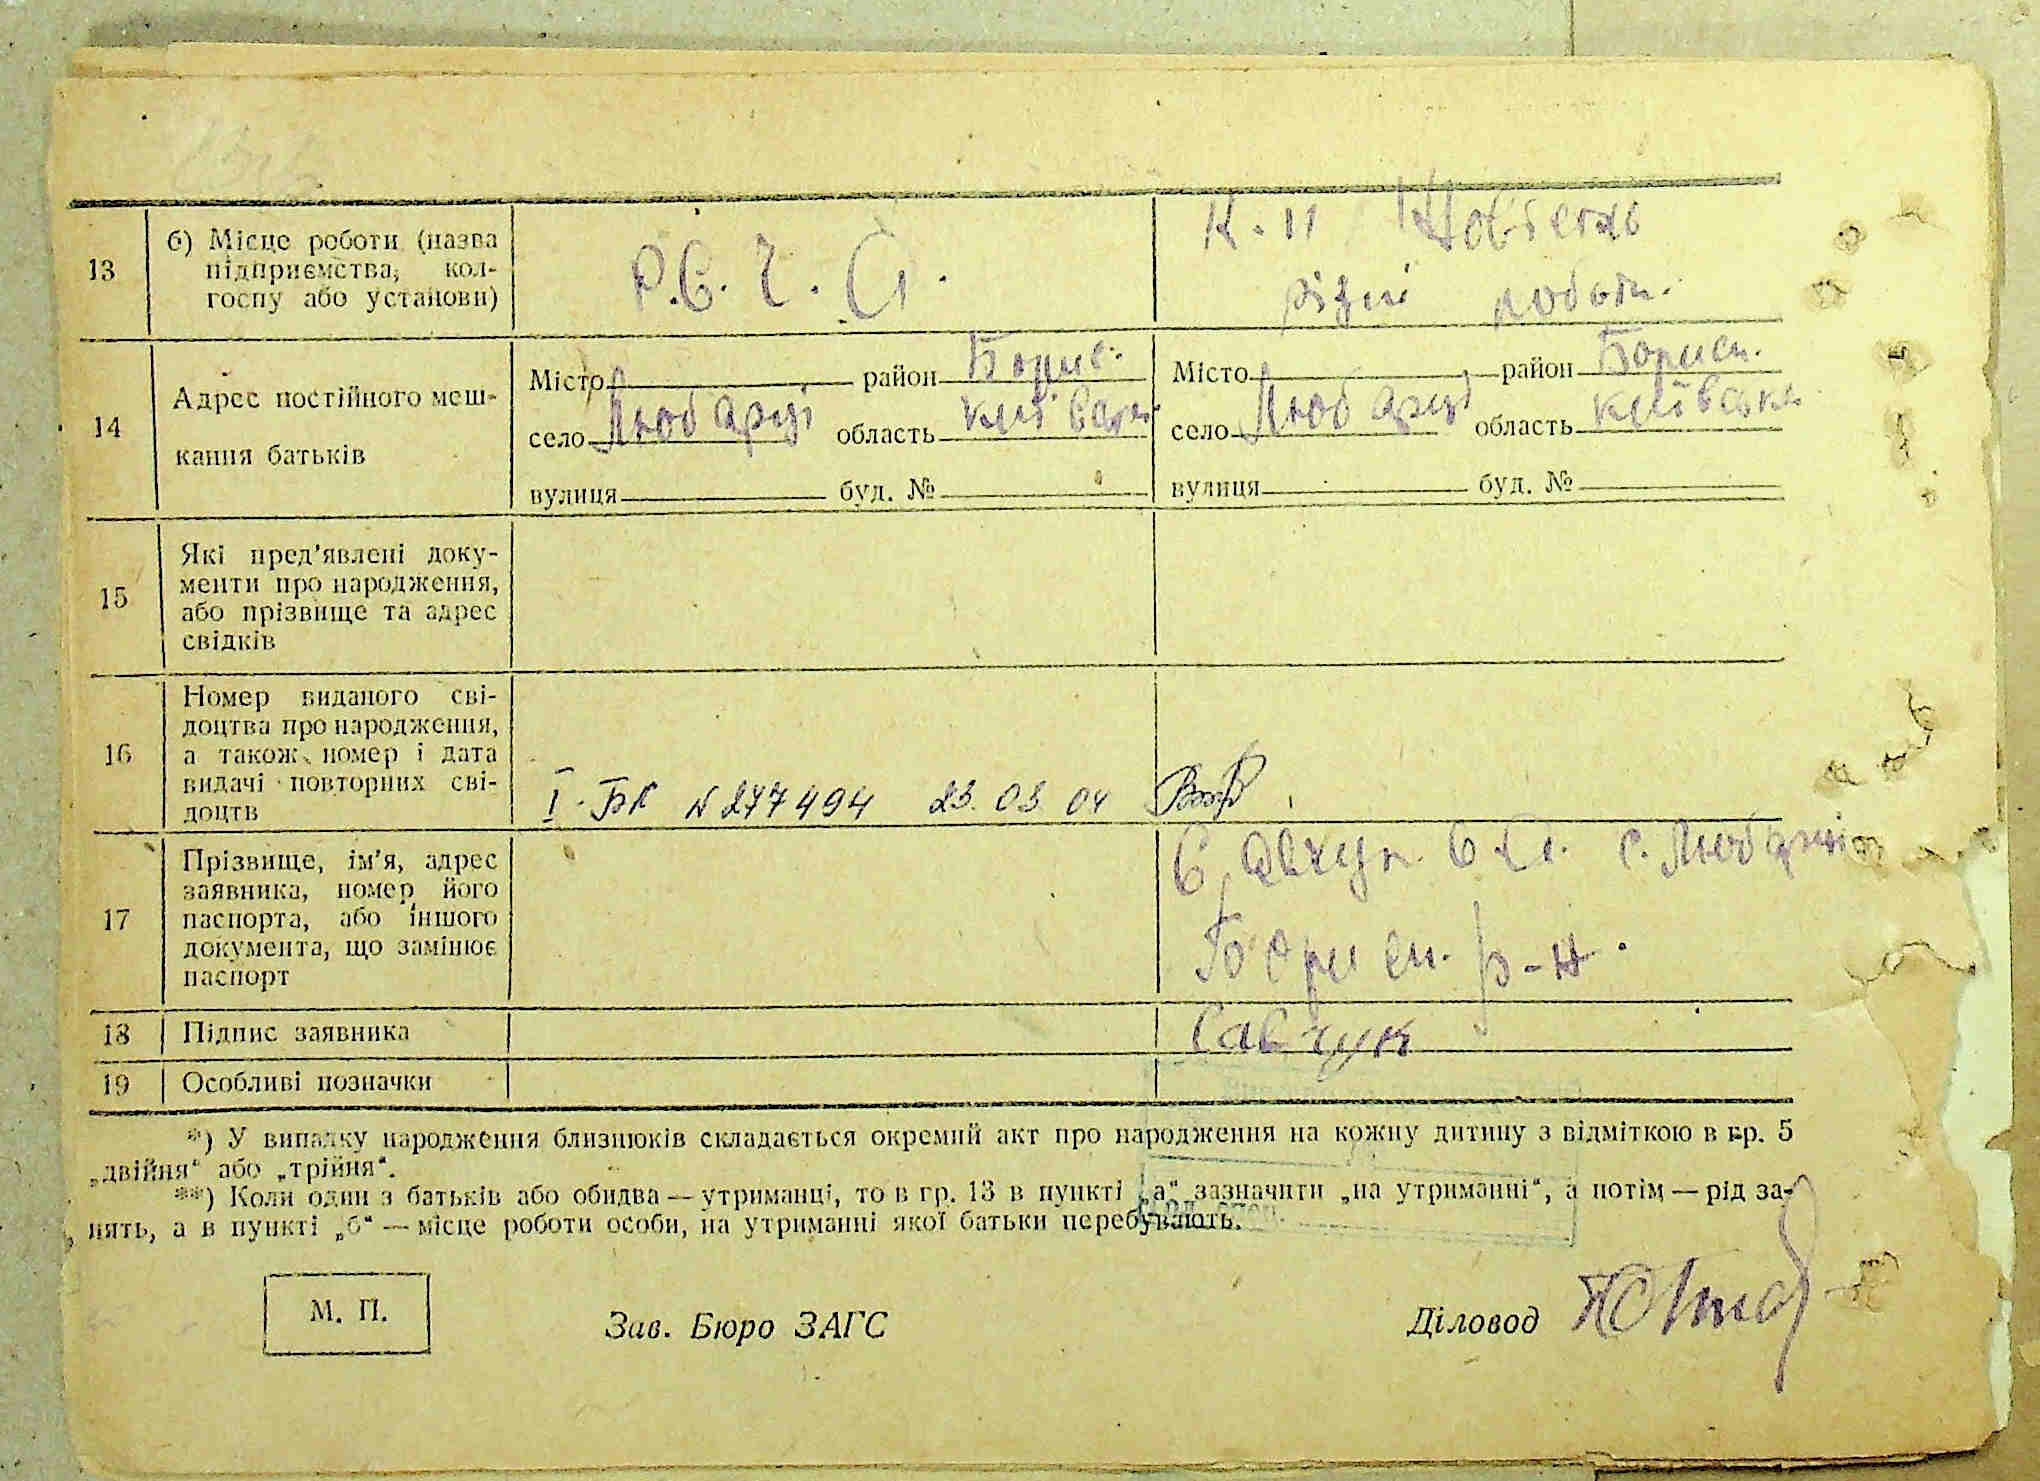 13
б) Місце роботи (назва
підприємства, кол-
госпу або установи)
Р.С.Ч.А.
К-п Жовтень
різні роботи.
14
Адрес постійного меш-
кання батьків
Місто район Борис.
село Любарці область Київська
вулиця буд. №
Місто район Борисп.
село Любарці область Київська
вулиця буд. №
15
Які пред'явлені доку-
менти про народження,
або прізвище та адрес
свідків
16
Номер виданого сві-
доцтва про народження,
а також номер і дата
видачі повторних сві-
доцтв
I-БК N 277494 23.03.04
17
Прізвище, ім'я, адрес
заявника, номер його
паспорта, або іншого
документа, що замінює
паспорт
с. Любарці
Борисп. р-н.
18
Підпис заявника
Савчук
19
Особливі позначки
*) У випадку народження близнюків складається окремий акт про народження на кожну дитину з відміткою в гр. 5
„двійня“ або „трійня“.
**) Коли один з батьків або обидва — утриманці, то в гр. 13 в пункті „а“ зазначити „на утриманні“, а потім — рід за-
нять, а в пункті „б“ — місце роботи особи, на утриманні якої батьки перебувають.
М. П.
Зав. Бюро ЗАГС
Діловод